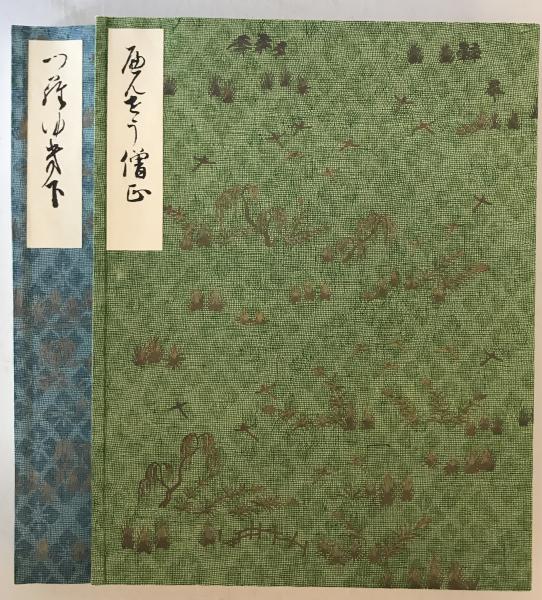 へんせう僧正
つらゆき下